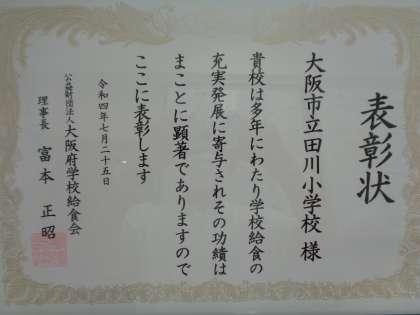 表彰状
大阪市立田川小学校 様
貴校は多年にわたり学校給食の
充実発展に寄与されその功績は
まことに顕著でありますので
ここに表彰します
令和四年七月二十五日
公益財団法人 大阪府学校給食会
理事長 富本正昭